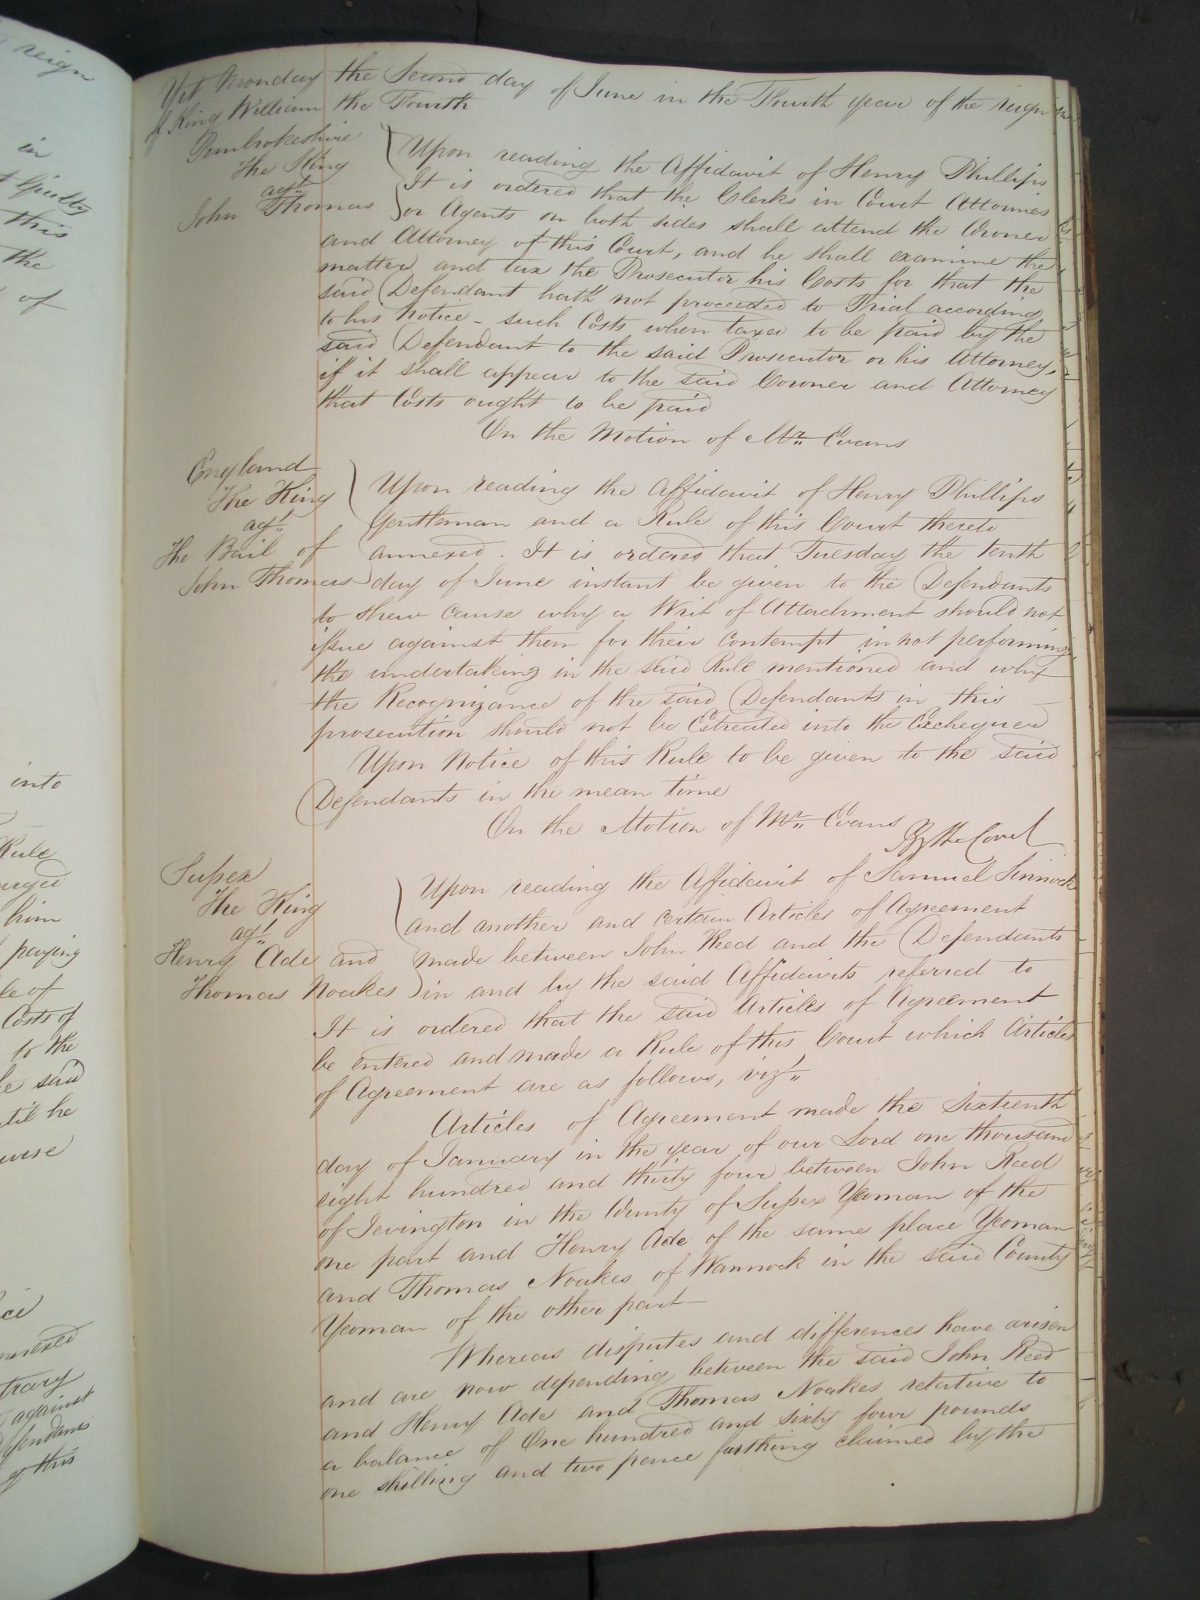 Yet Monday the Second day of June in the Fourth year of the reign
of King William the Fourth
Pembrokeshire
The King
agt.
John Thomas
Upon reading the Affidavit of Henry Phillips
It is ordered that the Clerks in Court Attornies
or Agents on both sides shall attend the Coroner
and Attorney of this Court, and he shall examine the
matter and tax the Prosecutor his Costs for that the
said Defendant hath not proceeded to Trial according
to his Notice - such Costs when taxed to be paid by the
said Defendant to the said Prosecutor or his Attorney,
if it shall appear to the said Coroner and Attorney
that Costs ought to be paid
On the Motion of Mr. Evans
England
The King
agt.
The Bail of
John Thomas
Upon reading the Affidavit of Henry Phillips
Gentleman and a Rule of this Court thereto
annexed. It is ordered that Tuesday the tenth
day of June instant be given to the Defendants
to shew cause why a Writ of Attachment should not
issue against them for their contempt in not performing
the undertaking in the said Rule mentioned and why
the Recognizance of the said Defendants in this
prosecution should not be Estreated into the Exchequer
Upon Notice of this Rule to be given to the said
Defendants in the mean time
On the Motion of Mr. Evans
By the Court
Sussex
The King
agt.
Henry Ade and
Thomas Noakes
Upon reading the Affidavit of Samuel Sinnock
and another and certain Articles of Agreement
made between John Reed and the Defendants
in and by the said Affidavits referred to
It is ordered that the said Articles of Agreement
be entered and made a Rule of this Court which Articles
of Agreement are as follows, vizt.
Articles of Agreement made the Sixteenth
day of January in the year of our Lord one thousand
eight hundred and thirty four between John Reed
of Jevington in the County of Sussex Yeoman of the
one part and Henry Ade of the same place Yeoman
and Thomas Noakes of Wannock in the said County
Yeoman of the other part
Whereas disputes and differences have arisen
and are now depending between the said John Reed
and Henry Ade and Thomas Noakes relative to
a balance of One hundred and sixty four pounds
one shilling and two pence farthing claimed by the
reign
in
this
the
of
into
Rule
him
paying
Costs of
to the
said
until he
against
this